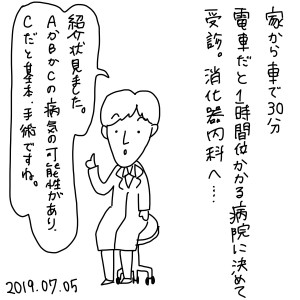 家から車で30分
電車だと1時間位かかる病院に決めて
受診。消化器内科へ…
紹介状見ました。
AかBかCの病気の可能性があり、
Cだと基本、手術ですね。
2019.07.05